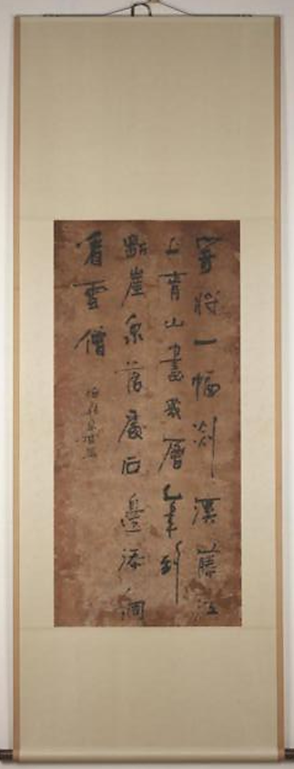 寄將一幅剡溪藤江
上青山畫幾層筆到
斷崖泉落處石邊添個
看雲僧